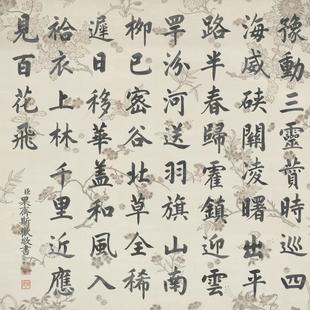 豫動三靈賛時巡四
海威硤關凌曙出平
路半春歸霍鎮迎雲
罕汾河送羽旗山南
柳已密谷北草全稀
遲日移華蓋和風入
袷衣上林千里近應
見百花飛
臣果齊斯歡敬書